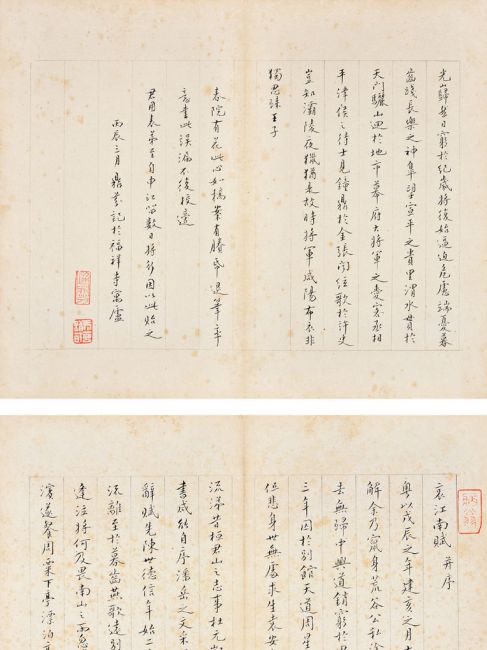 光巋然日窮於紀歲將復始逼迫危慮端憂暮
齒踐長樂之神皋望宣平之貴里渭水貫於
天門驪山迴於地市幕府大將軍之愛客丞相
平津侯之待士見鐘鼎於金張聞絃歌於許史
豈知灞陵夜獵猶是故時將軍咸陽布衣非
獨思歸王子
春院有花此心如擣案有賸帋退筆率
意書此誤漏不復校邊
君庸表弟至自申江留數日將行因以此貽之
丙辰三月鼎芬記於福祥寺寓廬
哀江南賦 并序
粵以戊辰之年建亥之月
解余乃竄身荒谷公私塗
去無歸中興道銷窮於
三年囚於別館天道周星
但悲身世無處求生袁安
流涕昔桓君山之志事杜元
書咸能自序潘岳之文采
辭賦先陳世德信年始二
流離至於暮齒燕歌遠別
逢泣將何及畏南山之雨忽
濱遂餐周粟下亭漂泊